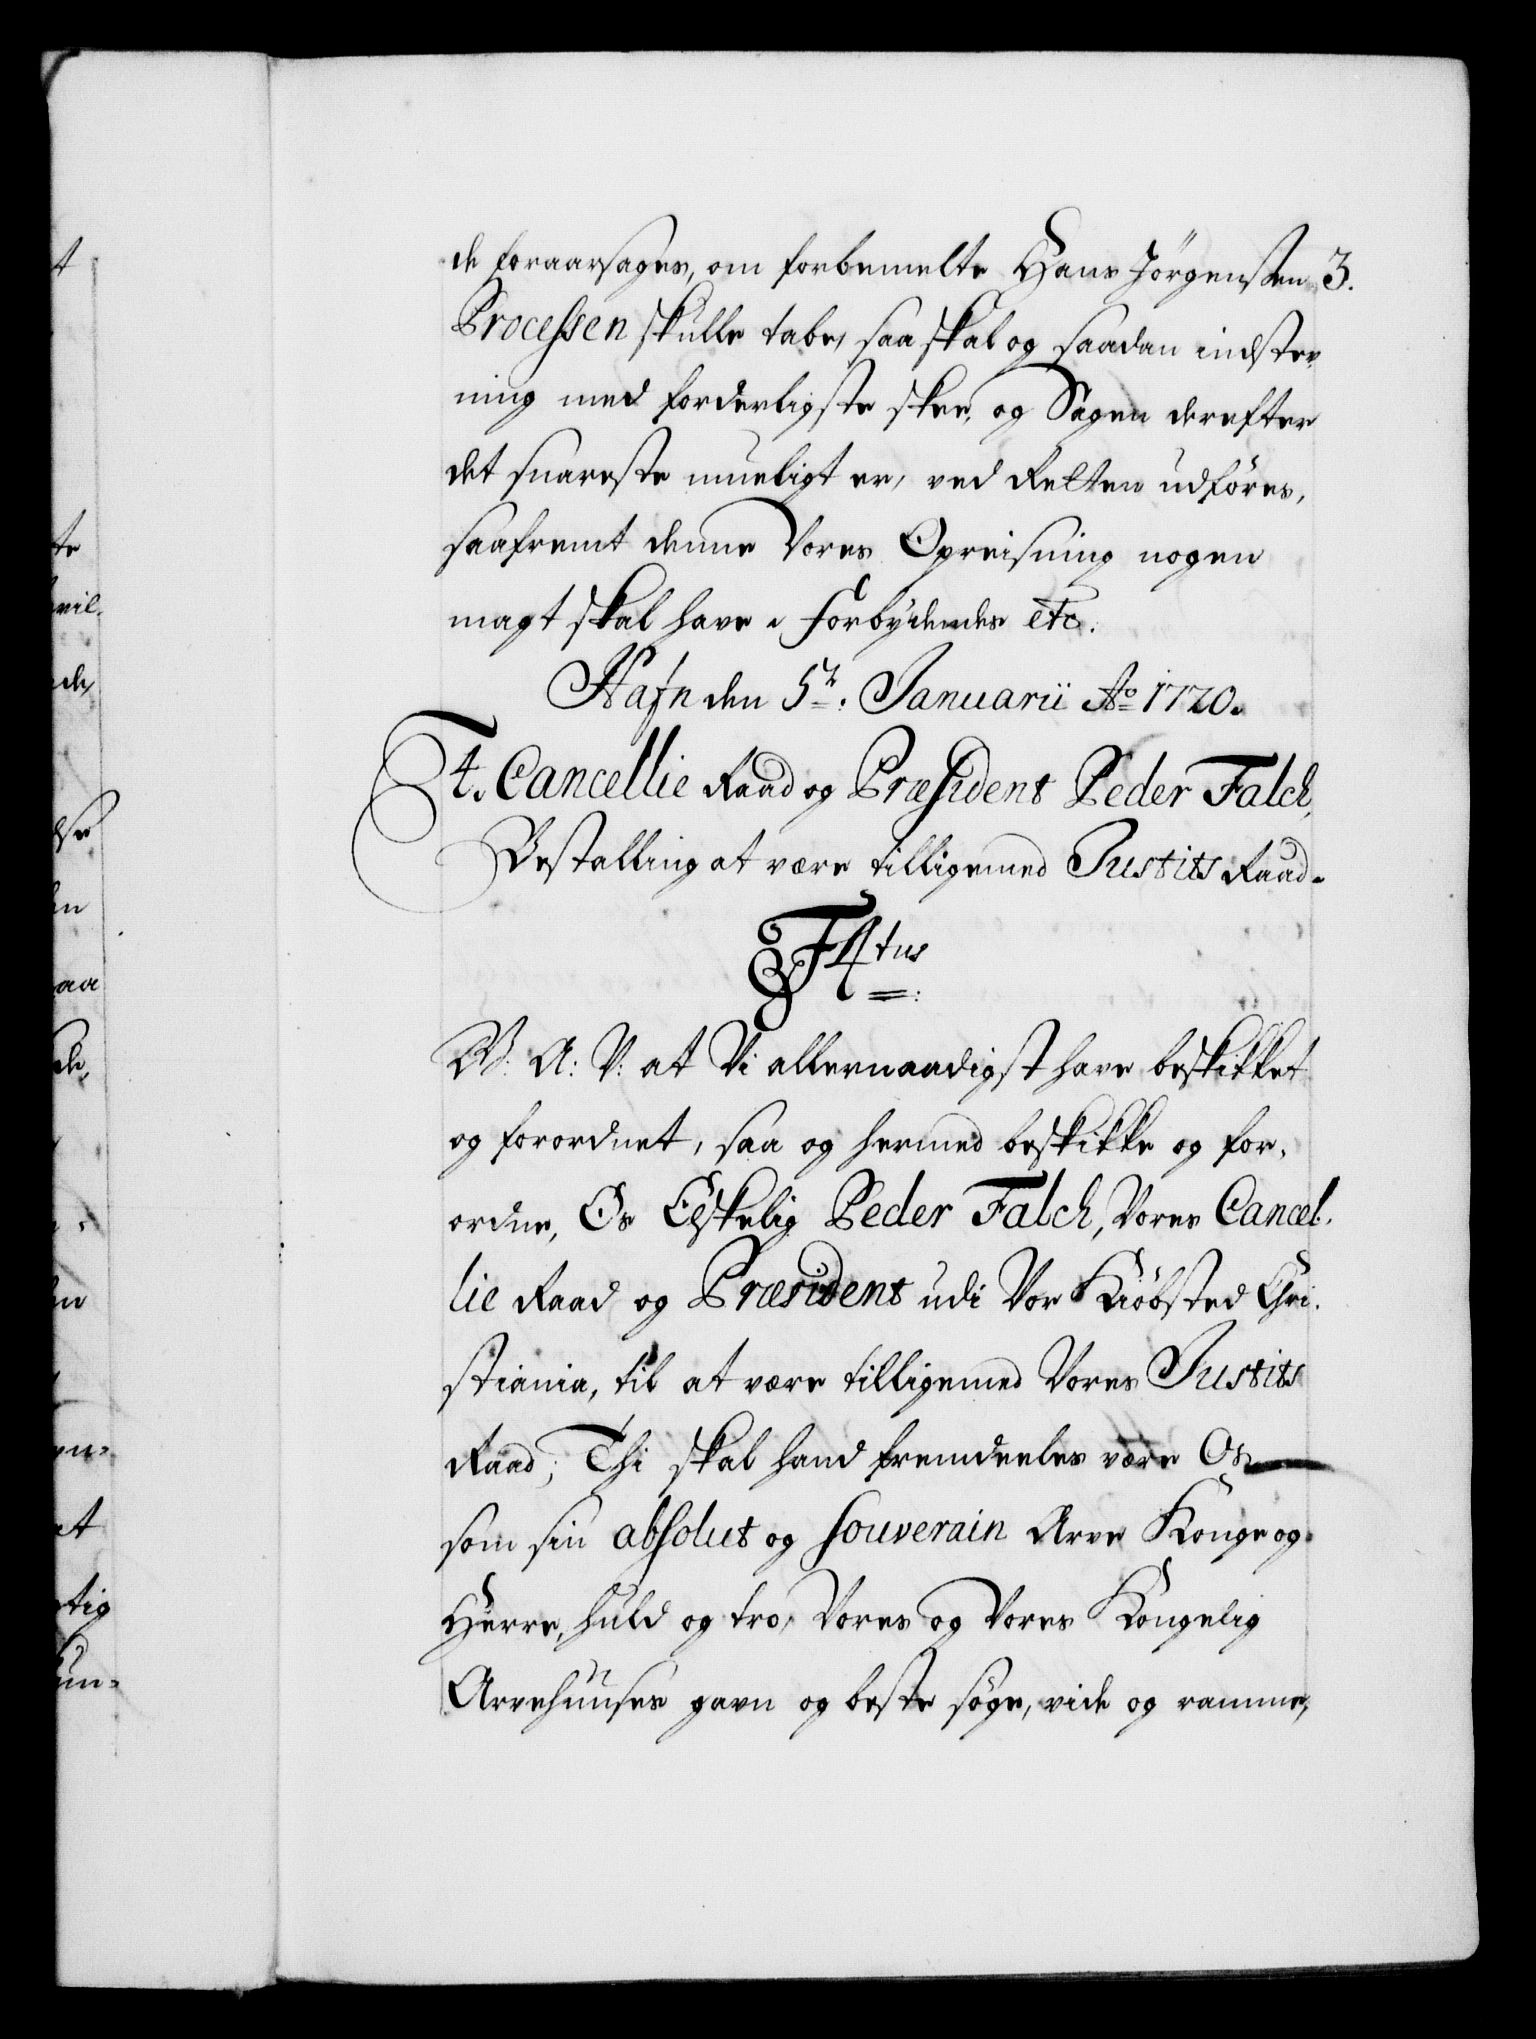 de foraarsages, om forbemelte Hans Jörgensten 3.
Processen skulle tabe, saa skal og saadan indstev,
ning med forderligste skee, og Sagen derefter
det snareste mueligt er, ved Retten udföres,
saafremt denne Vores Opreisning nogen
magt skal have. Forbydendes etc.
Hafn den 5te. Januarii Ao 1720.
4. Cancellie Raad og Præsident Peder Falch,
Bestalling at være tilligemed Justits Raad.
F4tus
W: A: V: at Vi allernaadigst have beskikket
og forordnet, saa og hermed beskikke og for,
ordne, Os Elskelig Peder Falch, Vores Cancel,
lie Raad og Præsident udi Vor Kiöbsted Chri,
stiania, til at være tilligemed Vores Justits
Raad; Thi skal hand fremdeeles være Os
som sin absolut og souverain Arve Konge og
Herre, huld og tro, Vores og Vores Kongelig
Arvehuuses gavn og beste söge, vide og ramme,
t
te
vil.
de,
lse
en
aa
de,
en
en=
et
tig
un=